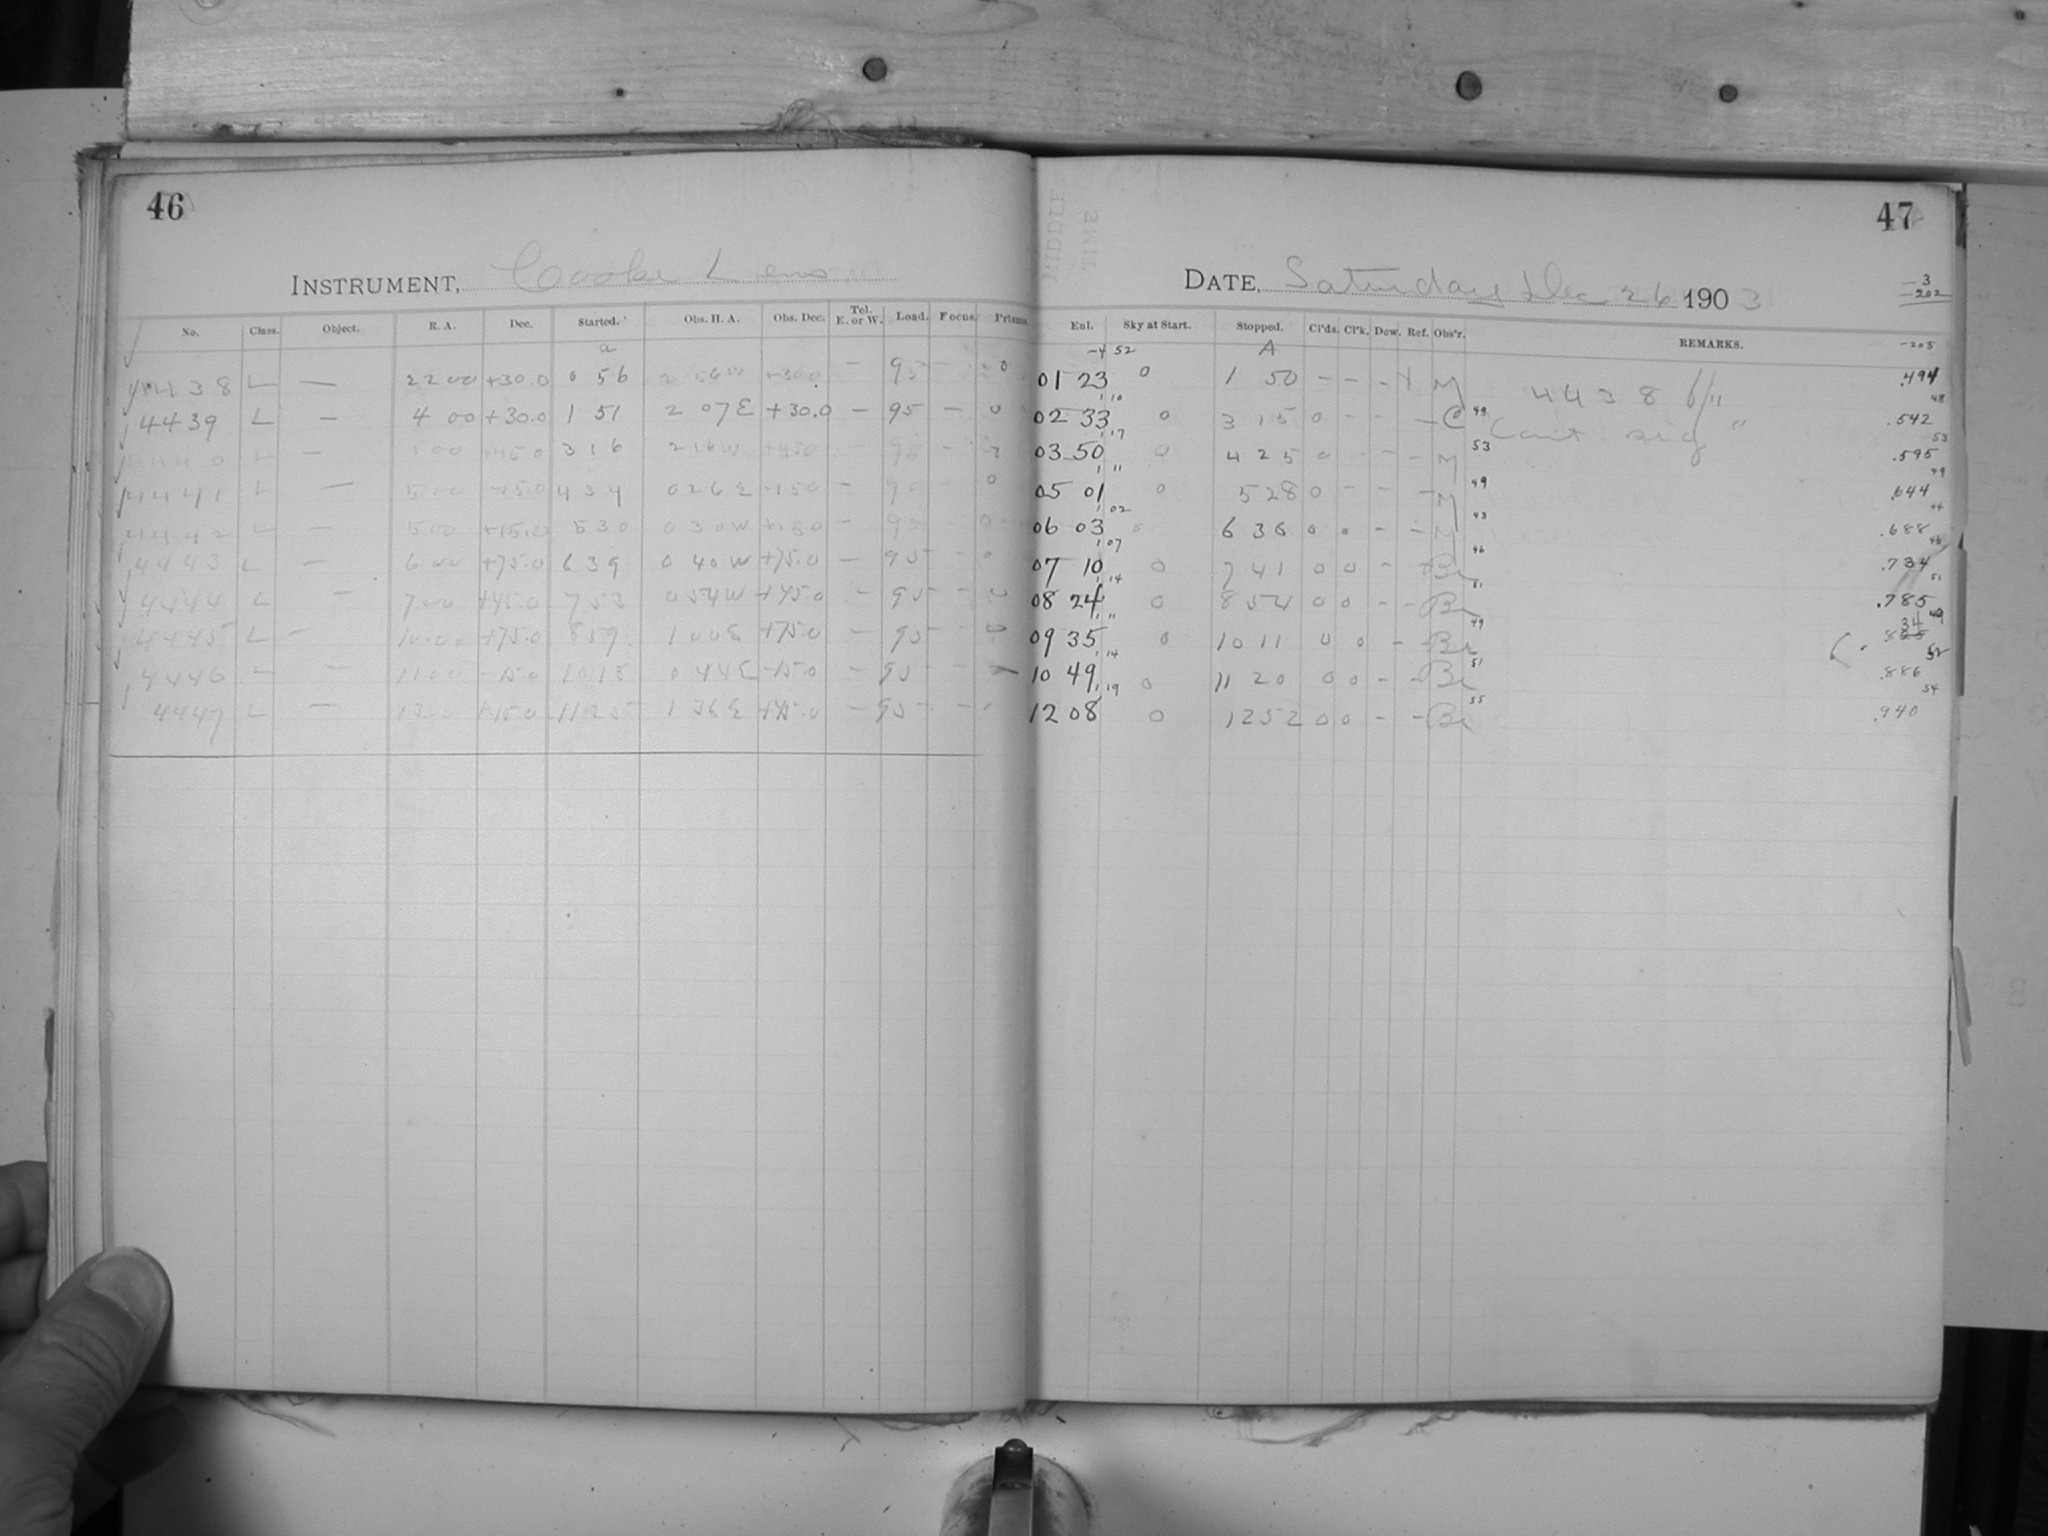 46
47
INSTRUMENT, Cooke Lens
DATE, Saturday Dec 26 1903
-3
-202
No. Class. Object. R. A. Dec. Started. Obs. H. A. Obs. Dec. Tel. E. or W. Load. Focus. Prisms Eul. Sky at Start. Stopped. Cl'ds. Cl'k. Dew. Ref. Obs'r. REMARKS. -205
a -4 52 A
4438 L — 22 00 +30.0 0 56 2 56W +30.0 — 95 – 0 01 23 0 1 50 – – – Y M 4438 f/11 .494
4439 L — 4 00 +30.0 1 51 2 07E +30.0 — 95 – 0 1 10 02 33 0 3 15 0 – – – C 49 Cant sig " 48 .542
4440 L — 1 00 +45.0 3 16 2 16W +45.0 95 – 1 17 03 50 0 4 25 0 – – – M 53 53 .595
4441 L — 5 00 -15.0 4 34 0 26E -15.0 — 90 0 1 11 05 01 0 5 28 0 – – – M 49 49 .644
4442 L — 5 00 +15.0 5 30 0 30W +15.0 — 95 – 0 1 02 06 03 0 6 36 0 0 – – M 43 44 .688
4443 L — 6 00 +75.0 6 39 0 40W +75.0 — 95 – 0 1 07 07 10 0 7 41 0 0 – Br 46 46 .734
4444 L — 7 00 +45.0 7 53 0 54W +45.0 — 95 – 1 14 08 24 0 8 54 0 0 – – Br 51 51 .785
4445 L — 10 00 +75.0 8 59 1 00E +75.0 — 95 – 0 1 11 09 35 0 10 11 0 0 – – Br 49 34 49
4446 L — 11 00 -15.0 10 18 0 44E -15.0 — 95 – 1 14 10 49 0 11 20 0 0 – – Br 51 52 .886
4447 L — 13 00 +45.0 11 25 1 36E +45.0 — 95 – 1 19 12 08 0 12 52 0 0 – – Br 55 54 .940